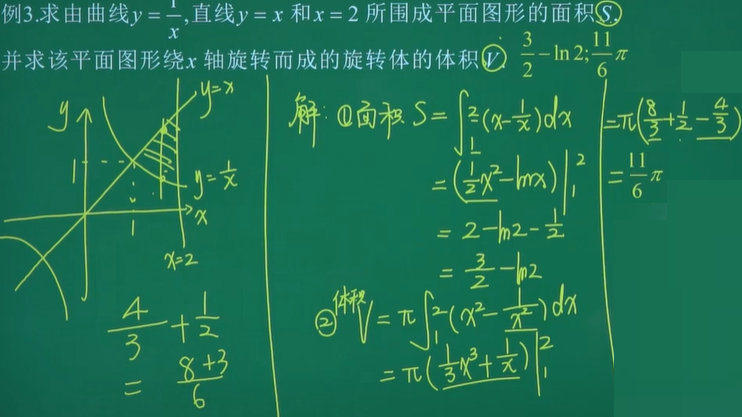 例3.求由曲线y=1/x,直线y=x和x=2所围成平面图形的面积S,
并求该平面图形绕x轴旋转而成的旋转体的体积V. 3/2-ln2;11/6π
y
y=x
1
y=1/x
x
1
x=2
4/3+1/2
=8+3/6
解:①面积S=∫₁²(x-1/x)dx
=(1/2x²-lnx)|₁²
=2-ln2-1/2
=3/2-ln2
②体积V=π∫₁²(x²-1/x²)dx
=π(1/3x³+1/x)|₁²
=π(8/3+1/2-4/3)
=11/6π